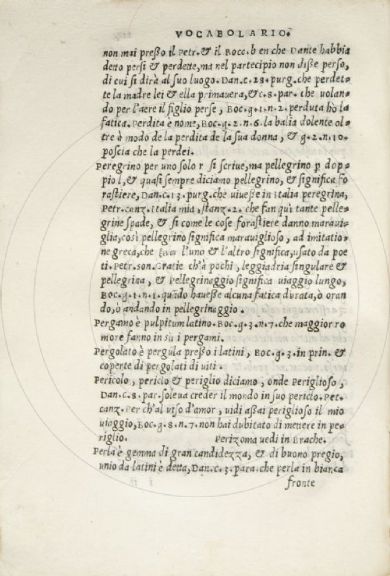 VOCABOLARIO.
non mai presso il Petr. & il Bocc. b en che Dante habbia
detto persi & perdette, ma nel partecipio non disse perso,
di cui si dirà al suo luogo. Dan. c. 28. purg. che perdet=
te la madre lei & ella primauera, & c. 8. par. che uolan=
do per l'aere il figlio perse, Boc. g. 1. n. 2. perduta ho la
fatica. Perdita è nome, Boc. g. 2. n. 6. la balia dolente ol=
tre è modo de la perdita de la sua donna, & g. 2. n. 10.
poscia che la perdei.
Peregrino per uno solo r si scriue, ma pellegrino p dop=
pio l, & quasi sempre diciamo pellegrino, & significa fo
rastiere, Dan. c. 13. purg. che uiuesse in italia peregrina,
Petr. canz. italia mia, stanz. 2. che fan quì tante pelle=
grine spade, & si come le cose forastiere danno maraui=
glia, così pellegrino significa marauiglioso, ad imitatio=
ne greca, che l'uno & l'altro significa, usato da poe
ti. Petr. son. Gratie ch'a pochi, leggiadria singulare &
pellegrina, & Pellegrinaggio significa uiaggio lungo,
Boc. g. 1. n. 1. quidò hauesse alcuna fatica durata, ò oran
do, ò andando in pellegrinaggio.
Pergamo è pulpitum latino. Boc. g. 3. n. 7. che maggior ro
more fanno in su i pergami.
Pergolato è pergula presso i latini, Boc. g. 3. in prin. &
coperte di pergolati di uiti.
Pericolo, periclo & periglio diciamo, onde Periglioso,
Dan. c. 8. par. solea creder il mondo in suo periclo. Pet.
canz. Per ch'al uiso d'amor, uidi assai periglioso il mio
uiaggio, Boc. g. 8. n. 7. non hai dubitato di mettere in pe=
riglio. Perizoma uedi in Brache.
Perla è gemma di gran candidezza, & di buono pregio,
unio da latini è detta, Dan. c. 3. para. che perla in bianca
fronte